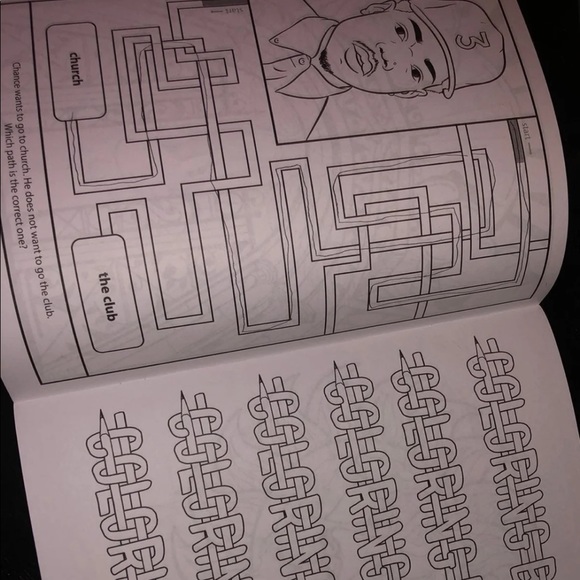 3
start
start
church
the club
Chance wants to go to church. He does not want to go the club.
Which path is the correct one?
COLORING
COLORING
COLORING
COLORING
COLORING
COLORING